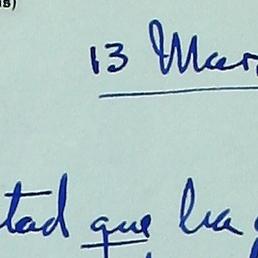 13 Mar
tad que ha